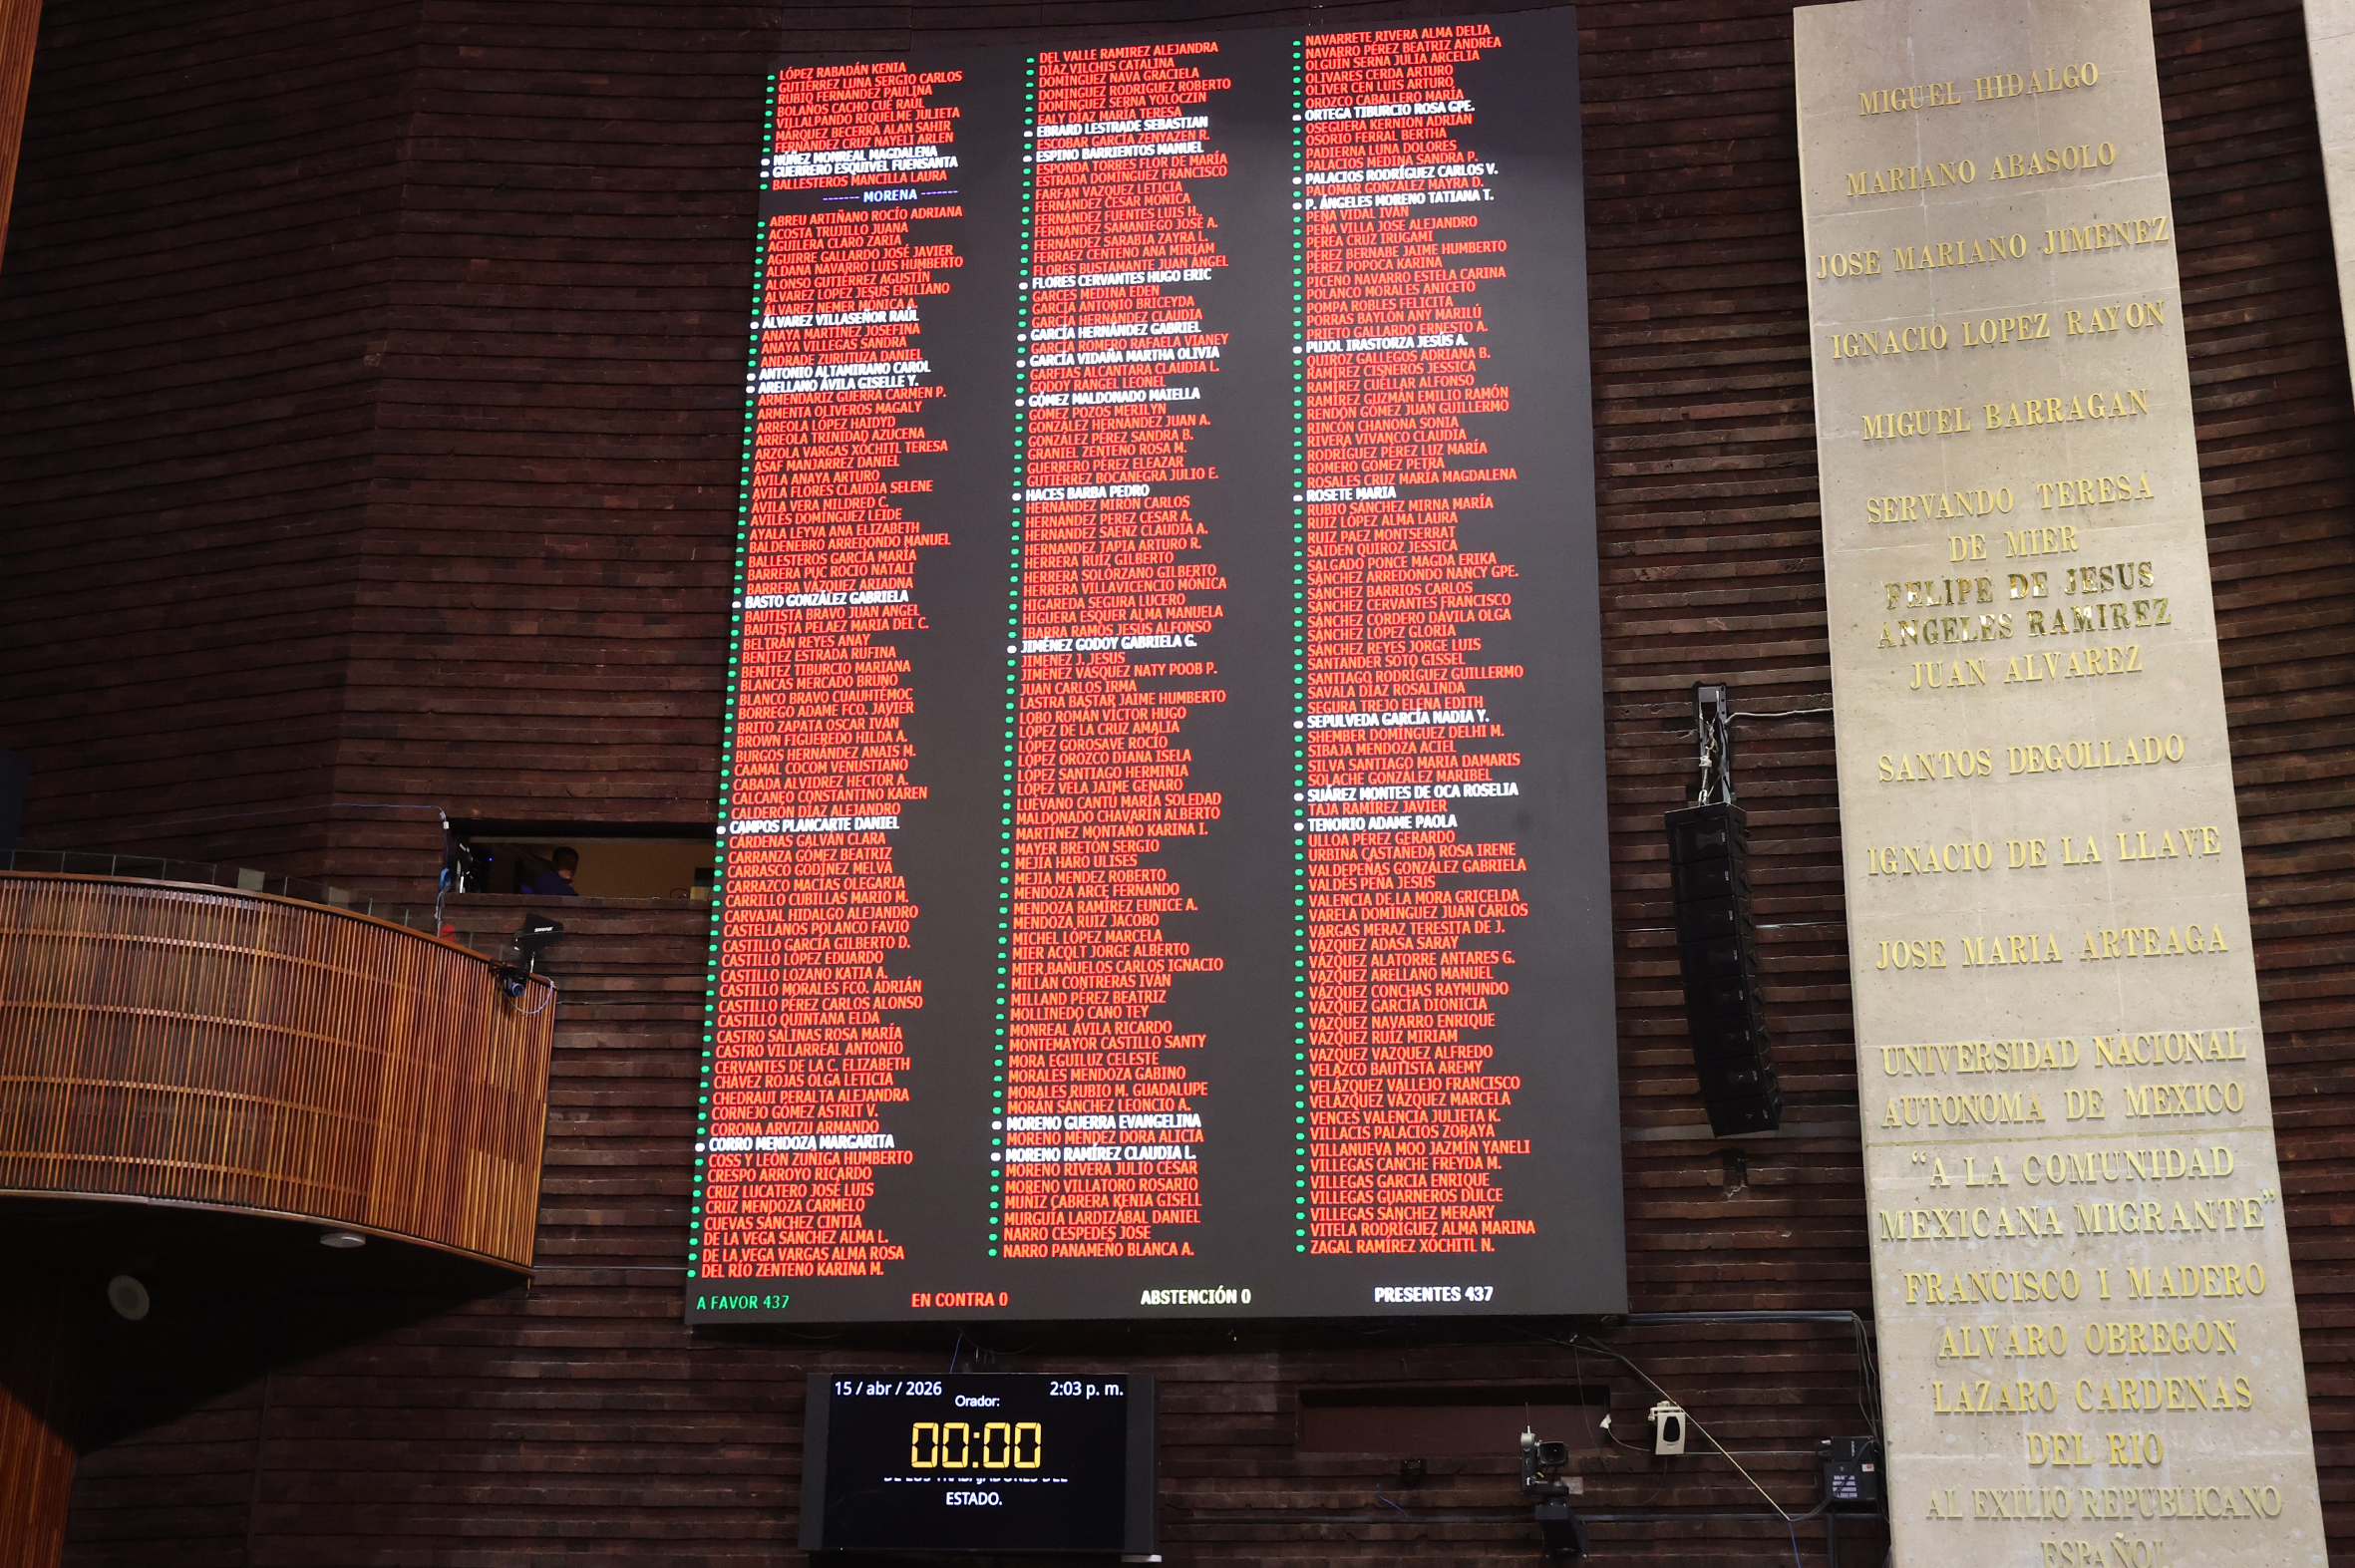 LÓPEZ RABADÁN KENIA
GUTIÉRREZ LUNA SERGIO CARLOS
RUBIO FERNÁNDEZ PAULINA
BOLAÑOS CACHO CUÉ RAÚL
VILLALPANDO RIQUELME JULIETA
MÁRQUEZ BECERRA ALAN SAHIR
FERNÁNDEZ CRUZ NAYELI ARLEN
NÚÑEZ MONREAL MAGDALENA
GUERRERO ESQUIVEL FUENSANTA
BALLESTEROS MANCILLA LAURA
------- MORENA -------
ABREU ARTIÑANO ROCÍO ADRIANA
ACOSTA TRUJILLO JUANA
AGUILERA CLARO ZARIA
AGUIRRE GALLARDO JOSÉ JAVIER
ALDANA NAVARRO LUIS HUMBERTO
ALONSO GUTIÉRREZ AGUSTÍN
ÁLVAREZ LÓPEZ JESÚS EMILIANO
ÁLVAREZ NEMER MÓNICA A.
ÁLVAREZ VILLASEÑOR RAÚL
ANAYA MARTÍNEZ JOSEFINA
ANAYA VILLEGAS SANDRA
ANDRADE ZURUTUZA DANIEL
ANTONIO ALTAMIRANO CAROL
ARELLANO ÁVILA GISELLE Y.
ARMENDARIZ GUERRA CARMEN P.
ARMENTA OLIVEROS MAGALY
ARREOLA LÓPEZ HAIDYD
ARREOLA TRINIDAD AZUCENA
ARZOLA VARGAS XÓCHITL TERESA
ASAF MANJARREZ DANIEL
ÁVILA ANAYA ARTURO
ÁVILA FLORES CLAUDIA SELENE
ÁVILA VERA MILDRED C.
AVILÉS DOMÍNGUEZ LEIDE
AYALA LEYVA ANA ELIZABETH
BALDENEBRO ARREDONDO MANUEL
BALLESTEROS GARCÍA MARÍA
BARRERA PUC ROCÍO NATALÍ
BARRERA VÁZQUEZ ARIADNA
BASTO GONZÁLEZ GABRIELA
BAUTISTA BRAVO JUAN ÁNGEL
BAUTISTA PELÁEZ MARÍA DEL C.
BELTRÁN REYES ANAY
BENÍTEZ ESTRADA RUFINA
BENÍTEZ TIBURCIO MARIANA
BLANCAS MERCADO BRUNO
BLANCO BRAVO CUAUHTÉMOC
BORREGO ADAME FCO. JAVIER
BRITO ZAPATA OSCAR IVÁN
BROWN FIGUEREDO HILDA A.
BURGOS HERNÁNDEZ ANAIS M.
CAAMAL COCOM VENUSTIANO
CABADA ALVIDREZ HECTOR A.
CALCANEO CONSTANTINO KAREN
CALDERÓN DÍAZ ALEJANDRO
CAMPOS PLANCARTE DANIEL
CÁRDENAS GALVÁN CLARA
CARRANZA GÓMEZ BEATRIZ
CARRASCO GODÍNEZ MELVA
CARRAZCO MACÍAS OLEGARIA
CARRILLO CUBILLAS MARIO M.
CARVAJAL HIDALGO ALEJANDRO
CASTELLANOS POLANCO FAVIO
CASTILLO GARCÍA GILBERTO D.
CASTILLO LÓPEZ EDUARDO
CASTILLO LOZANO KATIA A.
CASTILLO MORALES FCO. ADRIÁN
CASTILLO PÉREZ CARLOS ALONSO
CASTILLO QUINTANA ELDA
CASTRO SALINAS ROSA MARÍA
CASTRO VILLARREAL ANTONIO
CERVANTES DE LA C. ELIZABETH
CHÁVEZ ROJAS OLGA LETICIA
CHEDRAUI PERALTA ALEJANDRA
CORNEJO GÓMEZ ASTRIT V.
CORONA ARVIZU ARMANDO
CORRO MENDOZA MARGARITA
COSS Y LEÓN ZÚÑIGA HUMBERTO
CRESPO ARROYO RICARDO
CRUZ LUCATERO JOSÉ LUIS
CRUZ MENDOZA CARMELO
CUEVAS SÁNCHEZ CINTIA
DE LA VEGA SÁNCHEZ ALMA L.
DE LA VEGA VARGAS ALMA ROSA
DEL RÍO ZENTENO KARINA M.
DEL VALLE RAMÍREZ ALEJANDRA
DÍAZ VILCHIS CATALINA
DOMÍNGUEZ NAVA GRACIELA
DOMÍNGUEZ RODRÍGUEZ ROBERTO
DOMÍNGUEZ SERNA YOLOCZIN
EALY DÍAZ MARÍA TERESA
EBRARD LESTRADE SEBASTIAN
ESCOBAR GARCÍA ZENYAZEN R.
ESPINO BARRIENTOS MANUEL
ESPONDA TORRES FLOR DE MARÍA
ESTRADA DOMÍNGUEZ FRANCISCO
FARFÁN VÁZQUEZ LETICIA
FERNÁNDEZ CÉSAR MÓNICA
FERNÁNDEZ FUENTES LUIS H.
FERNÁNDEZ SAMANIEGO JOSÉ A.
FERNÁNDEZ SARABIA ZAYRA L.
FERRAEZ CENTENO ANA MIRIAM
FLORES BUSTAMANTE JUAN ÁNGEL
FLORES CERVANTES HUGO ERIC
GARCES MEDINA EDEN
GARCÍA ANTONIO BRICEYDA
GARCÍA HERNÁNDEZ CLAUDIA
GARCÍA HERNÁNDEZ GABRIEL
GARCÍA ROMERO RAFAELA VIANEY
GARCÍA VIDAÑA MARTHA OLIVIA
GARFIAS ALCANTARA CLAUDIA L.
GODOY RANGEL LEONEL
GÓMEZ MALDONADO MAIELLA
GÓMEZ POZOS MERILYN
GONZÁLEZ HERNÁNDEZ JUAN A.
GONZÁLEZ PÉREZ SANDRA B.
GRANIEL ZENTENO ROSA M.
GUERRERO PÉREZ ELEAZAR
GUTIÉRREZ BOCANEGRA JULIO E.
HACES BARBA PEDRO
HERNÁNDEZ MIRÓN CARLOS
HERNÁNDEZ PÉREZ CÉSAR A.
HERNÁNDEZ SAENZ CLAUDIA A.
HERNÁNDEZ TAPIA ARTURO R.
HERRERA RUIZ GILBERTO
HERRERA SOLÓRZANO GILBERTO
HERRERA VILLAVICENCIO MÓNICA
HIGAREDA SEGURA LUCERO
HIGUERA ESQUER ALMA MANUELA
IBARRA RAMOS JESÚS ALFONSO
JIMÉNEZ GODOY GABRIELA G.
JIMÉNEZ J. JESÚS
JIMÉNEZ VÁSQUEZ NATY POOB P.
JUAN CARLOS IRMA
LASTRA BASTAR JAIME HUMBERTO
LOBO ROMÁN VÍCTOR HUGO
LÓPEZ DE LA CRUZ AMALIA
LÓPEZ GOROSAVE ROCÍO
LÓPEZ OROZCO DIANA ISELA
LÓPEZ SANTIAGO HERMINIA
LÓPEZ VELA JAIME GENARO
LUÉVANO CANTÚ MARÍA SOLEDAD
MALDONADO CHAVARÍN ALBERTO
MARTÍNEZ MONTAÑO KARINA I.
MAYER BRETÓN SERGIO
MEJÍA HARO ULISES
MEJÍA MÉNDEZ ROBERTO
MENDOZA ARCE FERNANDO
MENDOZA RAMÍREZ EUNICE A.
MENDOZA RUIZ JACOBO
MICHEL LÓPEZ MARCELA
MIER ACOLT JORGE ALBERTO
MIER BAÑUELOS CARLOS IGNACIO
MILLÁN CONTRERAS IVÁN
MILLAND PÉREZ BEATRIZ
MOLLINEDO CANO TEY
MONREAL ÁVILA RICARDO
MONTEMAYOR CASTILLO SANTY
MORA EGUILUZ CELESTE
MORALES MENDOZA GABINO
MORALES RUBIO M. GUADALUPE
MORÁN SÁNCHEZ LEONCIO A.
MORENO GUERRA EVANGELINA
MORENO MÉNDEZ DORA ALICIA
MORENO RAMÍREZ CLAUDIA L.
MORENO RIVERA JULIO CÉSAR
MORENO VILLATORO ROSARIO
MUÑIZ CABRERA KENIA GISELL
MURGUÍA LARDIZÁBAL DANIEL
NARRO CÉSPEDES JOSÉ
NARRO PANAMEÑO BLANCA A.
NAVARRETE RIVERA ALMA DELIA
NAVARRO PÉREZ BEATRIZ ANDREA
OLGUÍN SERNA JULIA ARCELIA
OLIVARES CERDA ARTURO
OLIVER CEN LUIS ARTURO
OROZCO CABALLERO MARÍA
ORTEGA TIBURCIO ROSA GPE.
OSEGUERA KERNION ADRIÁN
OSORIO FERRAL BERTHA
PADIERNA LUNA DOLORES
PALACIOS MEDINA SANDRA P.
PALACIOS RODRÍGUEZ CARLOS V.
PALOMAR GONZÁLEZ MAYRA D.
P. ÁNGELES MORENO TATIANA T.
PEÑA VIDAL IVÁN
PEÑA VILLA JOSÉ ALEJANDRO
PEREA CRUZ IRUGAMI
PÉREZ BERNABE JAIME HUMBERTO
PÉREZ POPOCA KARINA
PICENO NAVARRO ESTELA CARINA
POLANCO MORALES ANICETO
POMPA ROBLES FELICITA
PORRAS BAYLÓN ANY MARILÚ
PRIETO GALLARDO ERNESTO A.
PUJOL IRASTORZA JESÚS A.
QUIROZ GALLEGOS ADRIANA B.
RAMÍREZ CISNEROS JESSICA
RAMÍREZ CUÉLLAR ALFONSO
RAMÍREZ GUZMÁN EMILIO RAMÓN
RENDÓN GÓMEZ JUAN GUILLERMO
RINCÓN CHANONA SONIA
RIVERA VIVANCO CLAUDIA
RODRÍGUEZ PÉREZ LUZ MARÍA
ROMERO GÓMEZ PETRA
ROSALES CRUZ MARÍA MAGDALENA
ROSETE MARIA
RUBIO SÁNCHEZ MIRNA MARÍA
RUIZ LÓPEZ ALMA LAURA
RUIZ PÁEZ MONTSERRAT
SAIDEN QUIROZ JESSICA
SALGADO PONCE MAGDA ERIKA
SÁNCHEZ ARREDONDO NANCY GPE.
SÁNCHEZ BARRIOS CARLOS
SÁNCHEZ CERVANTES FRANCISCO
SÁNCHEZ CORDERO DÁVILA OLGA
SÁNCHEZ LÓPEZ GLORIA
SÁNCHEZ REYES JORGE LUIS
SANTANDER SOTO GISSEL
SANTIAGO RODRÍGUEZ GUILLERMO
SAVALA DÍAZ ROSALINDA
SEGURA TREJO ELENA EDITH
SEPULVEDA GARCÍA NADIA Y.
SHEMBER DOMÍNGUEZ DELHI M.
SIBAJA MENDOZA ACIEL
SILVA SANTIAGO MARIA DAMARIS
SOLACHE GONZÁLEZ MARIBEL
SUÁREZ MONTES DE OCA ROSELIA
TAJA RAMÍREZ JAVIER
TENORIO ADAME PAOLA
ULLOA PÉREZ GERARDO
URBINA CASTAÑEDA ROSA IRENE
VALDEPEÑAS GONZÁLEZ GABRIELA
VALDÉS PEÑA JESÚS
VALENCIA DE LA MORA GRICELDA
VARELA DOMÍNGUEZ JUAN CARLOS
VARGAS MERAZ TERESITA DE J.
VÁZQUEZ ADASA SARAY
VÁZQUEZ ALATORRE ANTARES G.
VÁZQUEZ ARELLANO MANUEL
VÁZQUEZ CONCHAS RAYMUNDO
VÁZQUEZ GARCÍA DIONICIA
VÁZQUEZ NAVARRO ENRIQUE
VÁZQUEZ RUIZ MIRIAM
VÁZQUEZ VÁZQUEZ ALFREDO
VELAZCO BAUTISTA AREMY
VELÁZQUEZ VALLEJO FRANCISCO
VELÁZQUEZ VÁZQUEZ MARCELA
VENCES VALENCIA JULIETA K.
VILLACIS PALACIOS ZORAYA
VILLANUEVA MOO JAZMÍN YANELI
VILLEGAS CANCHÉ FREYDA M.
VILLEGAS GARCIA ENRIQUE
VILLEGAS GUARNEROS DULCE
VILLEGAS SÁNCHEZ MERARY
VITELA RODRÍGUEZ ALMA MARINA
ZAGAL RAMÍREZ XÓCHITL N.
A FAVOR 437 EN CONTRA 0 ABSTENCIÓN 0 PRESENTES 437
15 / abr / 2026 2:03 p. m.
Orador:
00:00
DE LOS TRABAJADORES DEL
ESTADO.
MIGUEL HIDALGO
MARIANO ABASOLO
JOSE MARIANO JIMENEZ
IGNACIO LOPEZ RAYON
MIGUEL BARRAGAN
SERVANDO TERESA
DE MIER
FELIPE DE JESUS
ANGELES RAMIREZ
JUAN ALVAREZ
SANTOS DEGOLLADO
IGNACIO DE LA LLAVE
JOSE MARIA ARTEAGA
UNIVERSIDAD NACIONAL
AUTONOMA DE MEXICO
“A LA COMUNIDAD
MEXICANA MIGRANTE”
FRANCISCO I MADERO
ALVARO OBREGON
LAZARO CARDENAS
DEL RIO
AL EXILIO REPUBLICANO
ESPAÑOL